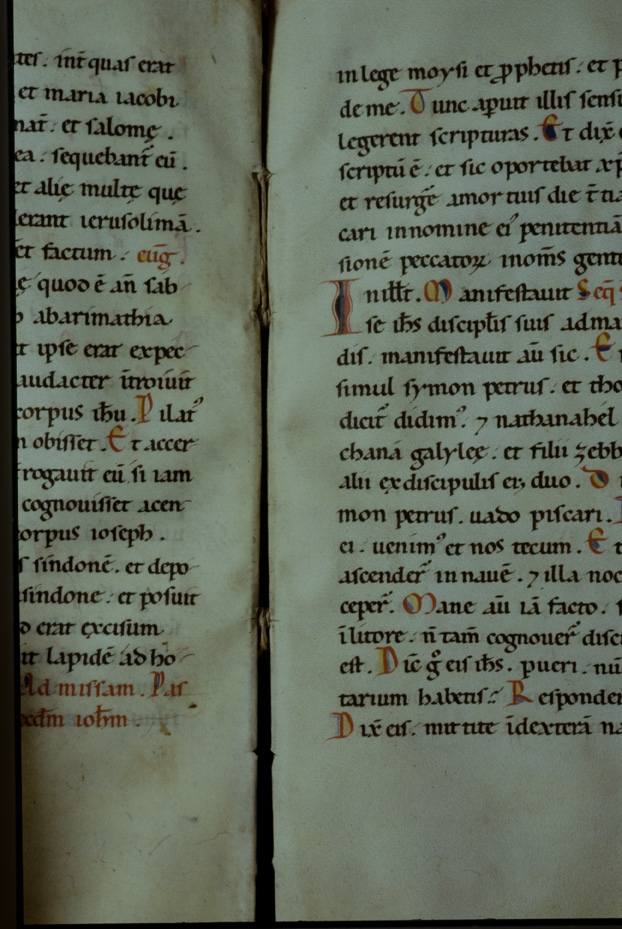 int̄ quas erat
et maria iacobi
et salomę .
sequebant̄ eū .
et alię multę quę
ierusolimā .
et factum . eūg .
quod ē añ sab
abarimathia
ipse erat expec
audacter ītroiuit
corpus ih̄u . Pilat᷒
obisset . Et accer
rogauit eū . si iam
cognouisset a cen
corpus ioseph .
sindonē . et depo
sindone . et posuit
erat excisum
lapidē ad ho
Ad missam . Pas
ioh̄m .
in lege moysi et ꝓphetis : et
de me . Tunc aꝑuit illis sensu
legerent scripturas . Et dix̄
scriptū ē : et sic oportebat xp̄
et resurgē a mortuis die t̄tia
cari in nomine ei᷒ penitentiā
sionē peccatoꝝ in om̄s gente
In illt̄ . Manifestauit Seq̄
se ih̄s discipl̄is suis ad ma
dis . manifestauit aū sic . E
simul symon petrus : et tho
dicit᷒ didim᷒ . ⁊ nathanahel
chana galylęę : et filii zebb
alii ex discipulis ei᷒ duo . D
mon petrus . uado piscari .
ei . uenim᷒ et nos tecum . Et
ascender̄ in nauē . ⁊ illa noc
ceper̄ . Mane aū iā facto .
ī litore . ñ tam̄ cognouer̄ disci
est . Dic̄ g̊ eis ih̄s . pueri . nū
tarium habetis : Responder
Dix̄ eis . mittite ī dexterā na